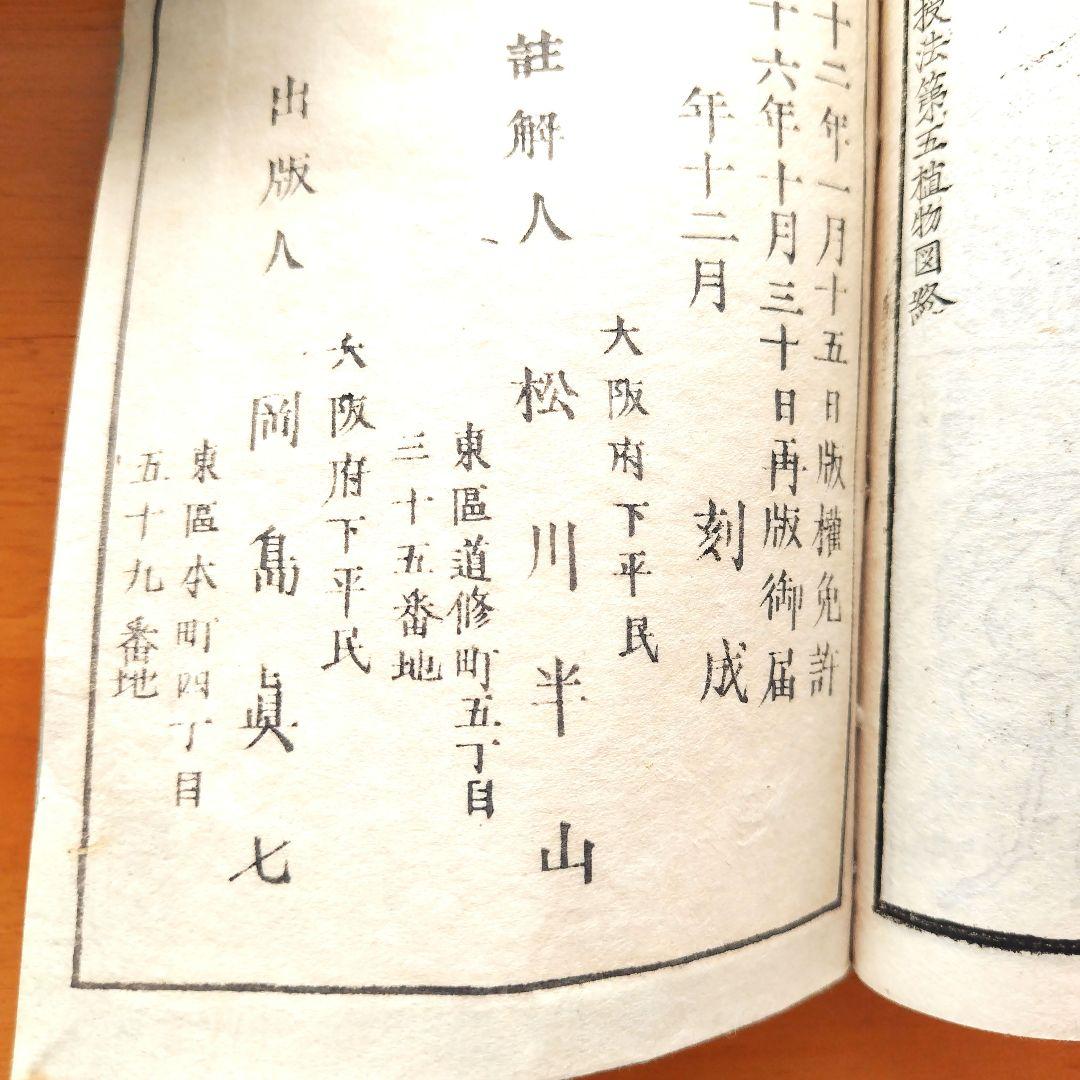 授法第五植物図畧
十二年一月十五日版權免許
十六年十月三十日再版御届
年十二月 刻成
註解人
大阪府下平民
松川半山
東區道修町五丁目
三十五番地
出版人
大阪府下平民
岡島眞七
東區本町四丁目
五十九番地